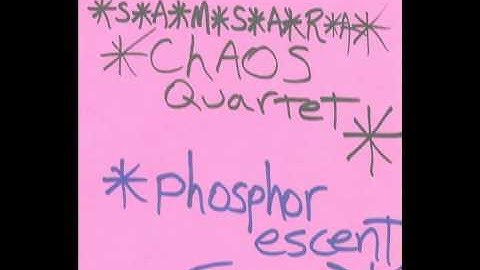 *S*A*M*S*A*R*A*
*ChAOS
Quartet*
*phosphor
escent